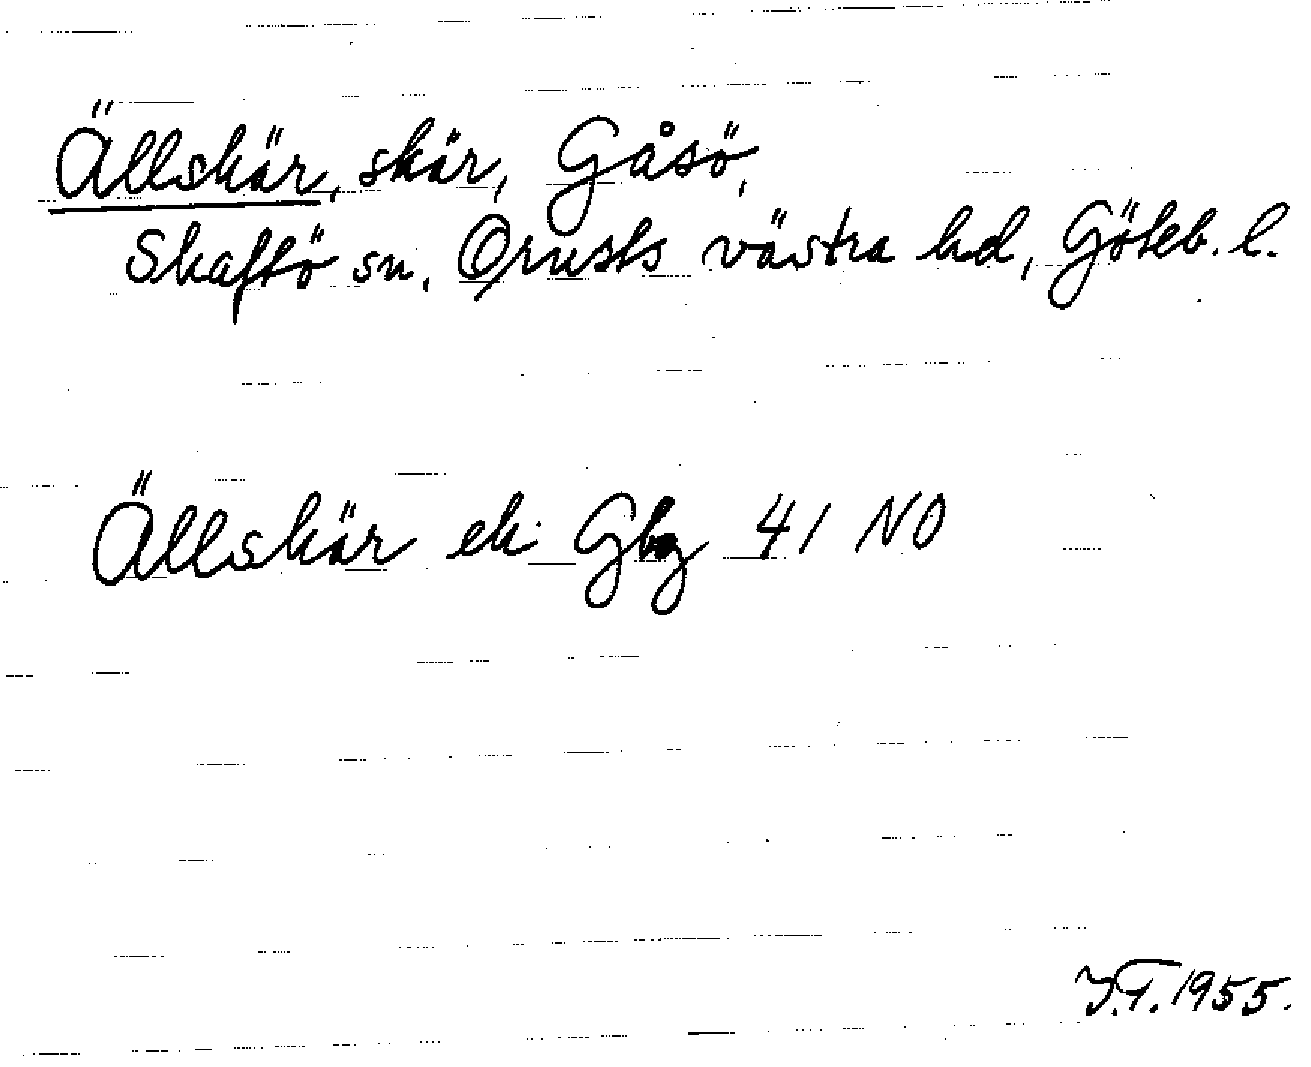 Ällskär, skär, Gåsö,
Skaftö sn. Orusts västra hd, Göteb. l.
Ällskär ek Gbg 41 NO
J.T. 1955.